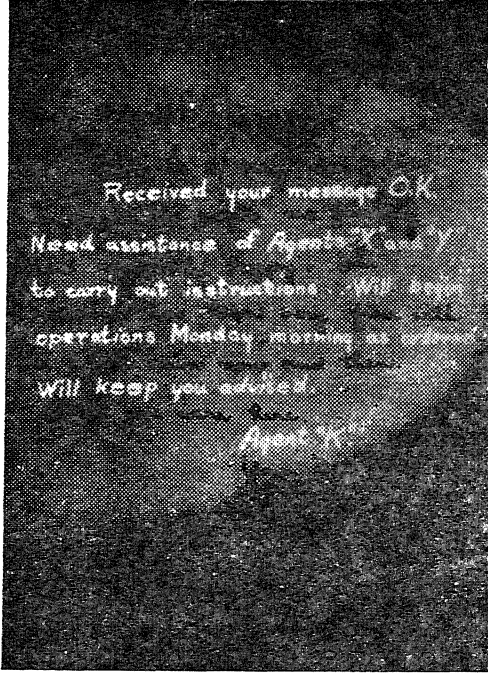 Received your message O.K.
Need assistance of Agents "X" and "Y"
to carry out instructions. Will begin
operations Monday morning as ordered.
Will keep you advised.
Agent "K"